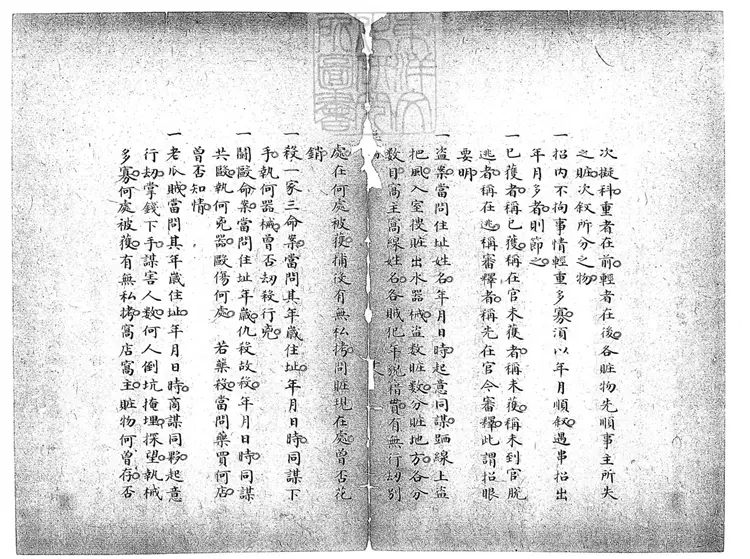 次擬科重者在前輕者在後各賍物先順事主所失
之賍次叙所分之物
一招內不拘事情輕重多寡湏以年月順叙遇事招出
年月多者則節之
一已獲者稱已獲稱在官未獲者稱未獲稱未到官脫
逃者稱在逃稱審釋者稱先在官今審釋此謂招眼
要明
一盜案當問住址姓名年月日時起意同謀跴線上盜
把風入室搜賍出水器械盜數賍數分賍地方各分
數目窩主窩線姓名各賊犯年貌籍貫有無行刼別
處在何處被獲捕役有無私拷問賍現在處曾否花
銷
一殺一家三命案當問其年歲住址年月日時同謀下
手執何器械曾否刼殺行兇
一鬪毆命案當問住址年歲仇殺故殺年月日時同謀
共毆執何兇器毆傷何處 若藥殺當問藥買何店
曾否知情
一老瓜賊當問其年歲住址年月日時商謀同夥起意
行刼掌錢下手謀害人數何人倒坑掩埋探望執械
多寡何處被獲有無私拷窩店窩主賍物何曾存否